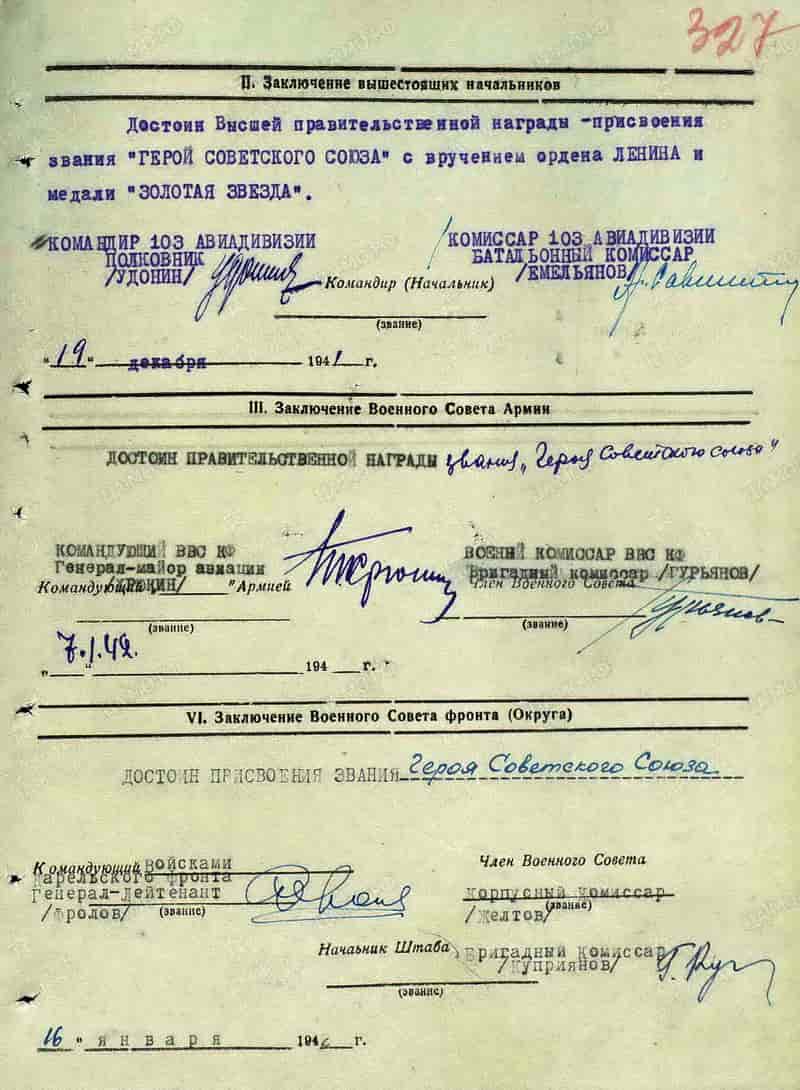 327
II. Заключение вышестоящих начальников
Достоин Высшей правительственной награды -присвоения
звания "ГЕРОЙ СОВЕТСКОГО СОЮЗА" с вручением ордена ЛЕНИНА и
медали "ЗОЛОТАЯ ЗВЕЗДА".
КОМАНДИР 103 АВИАДИВИЗИИ
ПОЛКОВНИК
/УДОНИН/
КОМИССАР 103 АВИАДИВИЗИИ
БАТАЛЬОННЫЙ КОМИССАР
/ЕМЕЛЬЯНОВ/
Командир (Начальник)
(звание)
"19" декабря 1941 г.
III. Заключение Военного Совета Армии
ДОСТОИН ПРАВИТЕЛЬСТВЕННОЙ НАГРАДЫ звания „Героя Советского союза"
КОМАНДУЮЩИЙ ВВС КФ
Генерал-майор авиации
Командующий "Армией
(звание)
ВОЕННЫЙ КОМИССАР ВВС КФ
Бригадный комиссар /ГУРЬЯНОВ/
Член Военного Совета
(звание)
7.1.42.
„ " 194 г.
VI. Заключение Военного Совета фронта (Округа)
ДОСТОИН ПРИСВОЕНИЯ ЗВАНИЯ Героя Советского Союза
Командующий Войсками
Карельского фронта
Генерал-Лейтенант
/Фролов/ (звание)
Член Военного Совета
Корпусный Комиссар
(звание)
/Желтов/
Начаьник Штаба Бригадный Комиссар
/Куприянов/
(звание)
16 " января 1942 г.